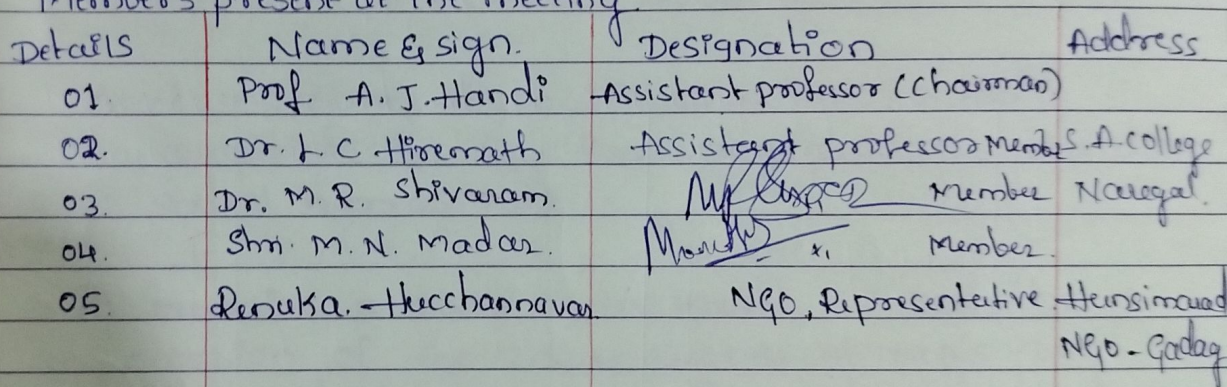 Members present at the meeting
Details Name & sign. Designation Address
01. Prof A. J. Handi Assistant professor (Chairman)
02. Dr. L. C Hiremath Assistant professor Member S. A. College
03. Dr. M. R. Shivaram. Member Naregal.
04. Shri. M. N. Madar. Member.
05. Renuka. Hucchannavar NGO, Representative
NGO - Gadag